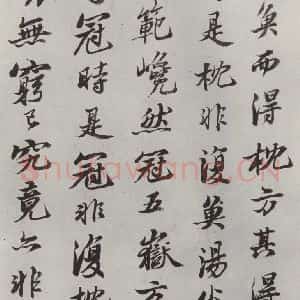 奐而得枕方其得
是枕非復奐湯
範巉然冠五嶽方
冠時是冠非復枕
無窮已究竟亦非
Shufawang.CN